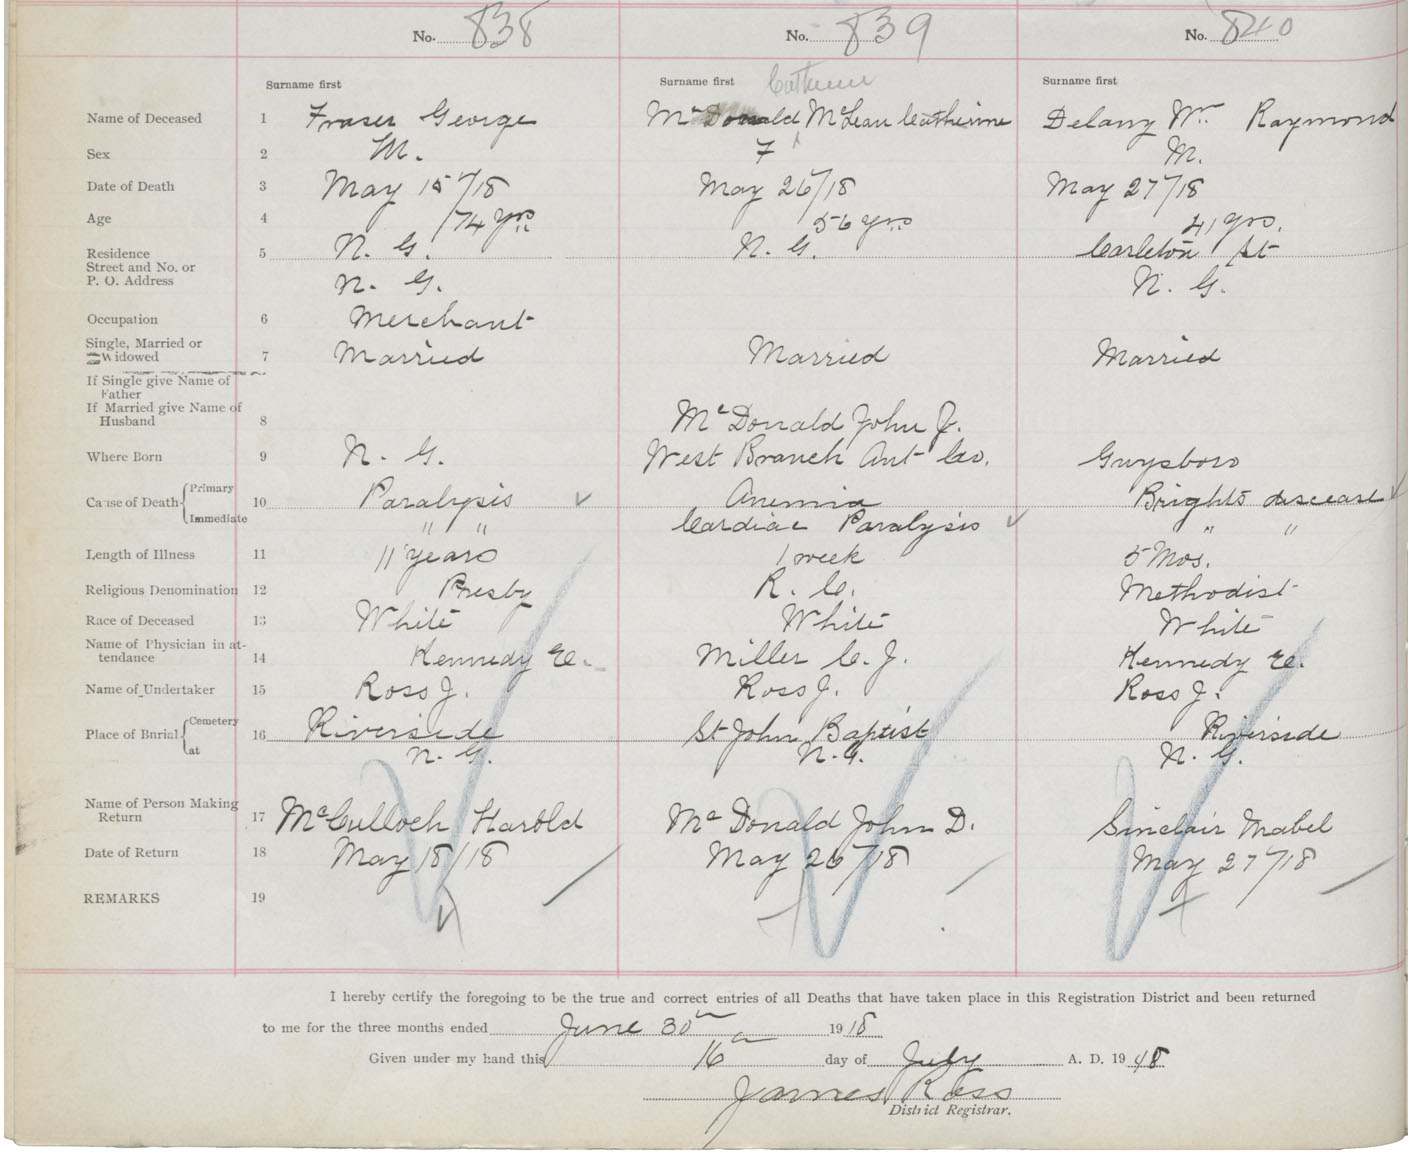 No. 838 No. 839 No. 840
Surname first Surname first Surname first
Catherine
Name of Deceased 1 Fraser George McDonald McLean Catherine Delany Wm Raymond
Sex 2 M. F M.
Date of Death 3 May 15/18 May 26/18 May 27/18
Age 4 74 yrs 56 yrs 41 yrs.
Residence 5 N. G. N. G. Carleton St
Street and No. or
P. O. Address N. G. N. G.
Occupation 6 Merchant
Single, Married or
Widowed 7 Married Married Married
If Single give Name of
Father
If Married give Name of
Husband 8 McDonald John J.
Where Born 9 N. G. West Branch Ant Co. Guysboro
Cause of Death Primary 10 Paralysis Anemia Brights disease
Immediate " " Cardiac Paralysis " "
Length of Illness 11 11 years 1 week 5 Mos.
Religious Denomination 12 Presby R. C. Methodist
Race of Deceased 13 White White White
Name of Physician in at-
tendance 14 Kennedy E. Miller C. J. Kennedy E.
Name of Undertaker 15 Ross J. Ross J. Ross J.
Place of Burial Cemetery 16 Riverside St John Baptist Riverside
at N. G. N. G. N. G.
Name of Person Making
Return 17 McCulloch Harold McDonald John D. Sinclair Mabel
Date of Return 18 May 18/18 May 26/18 May 27/18
REMARKS 19
I hereby certify the foregoing to be the true and correct entries of all Deaths that have taken place in this Registration District and been returned
to me for the three months ended June 30th 1918
Given under my hand this 16th day of July A. D. 1918
James Ross
District Registrar.